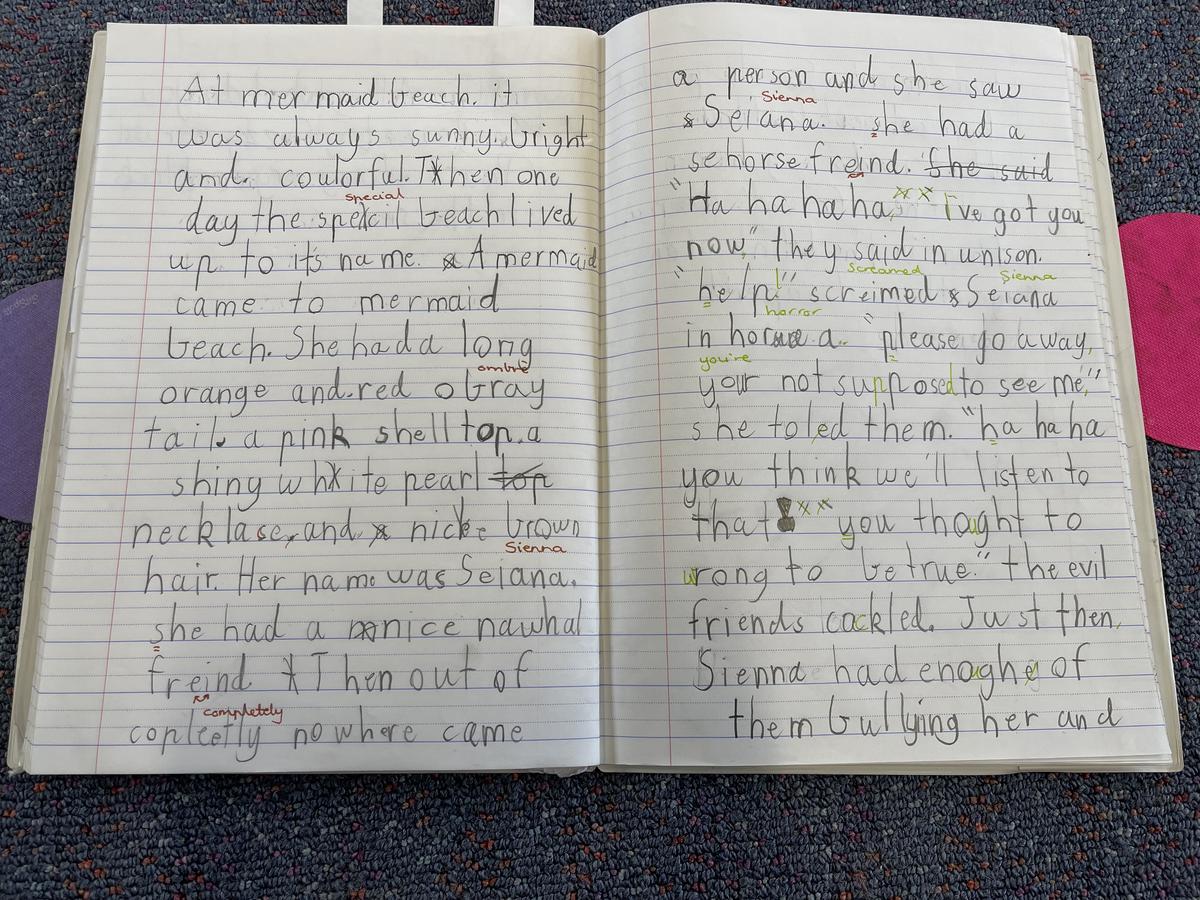 At mermaid beach. it
was always sunny. bright
and. coulorful. Then one
special
day the specil beach lived
up to it's name. A mermaid
came to mermaid
beach. She had a long
ombre
orange and.red obray
tail. a pink shell top.a
shiny white pearl top
necklase, and nice brown
Sienna
hair. Her name was Seiana.
she had a nice nawhal
freind Then out of
completely
copleetly nowhere came
a person and she saw
Sienna
Seiana. she had a
sehorse freind. She said
"Ha ha ha ha, I've got you
now," they said in unison.
screamed Sienna
"help!" screimed Seiana
horror
in a. "please go away,
you're
your not supposed to see me,"
she toled them. "ha ha ha
you think we'll listen to
that you thoaght to
wrong to be true." the evil
friends cackled. Just then,
Sienna had enoaghe of
them bullying her and